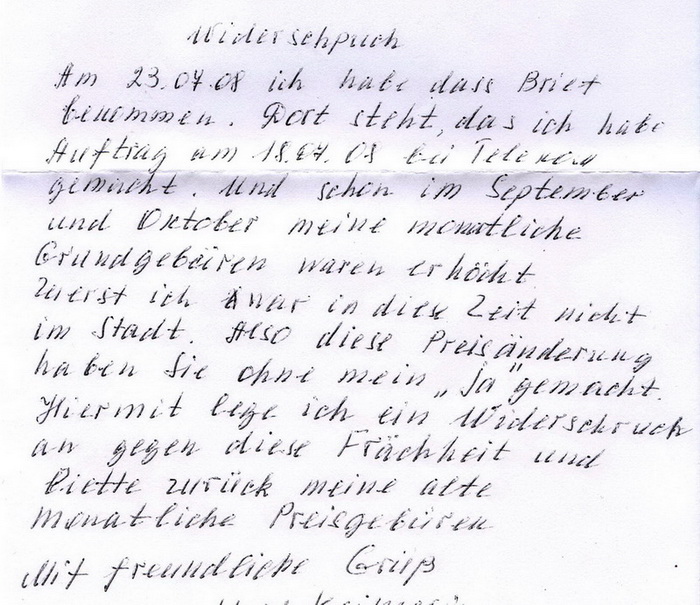 Widerschpuch
Am 23.07.08 ich habe dass Brief
bekommen. Dort steht, das ich habe
Auftrag am 18.07.08 bei
gemacht. Und schon im September
und Oktober meine monatliche
Grundgebüiren waren erhöcht
zuerst ich war in diese Zeit nicht
im Stadt. Also diese Preisänderung
haben Sie ohne mein „Ja" gemacht.
Hiermit lege ich ein Widerschruch
an gegen diese Frächheit und
biette zurück meine alte
monatliche Preisgebüren
Mit freundliche Grüß